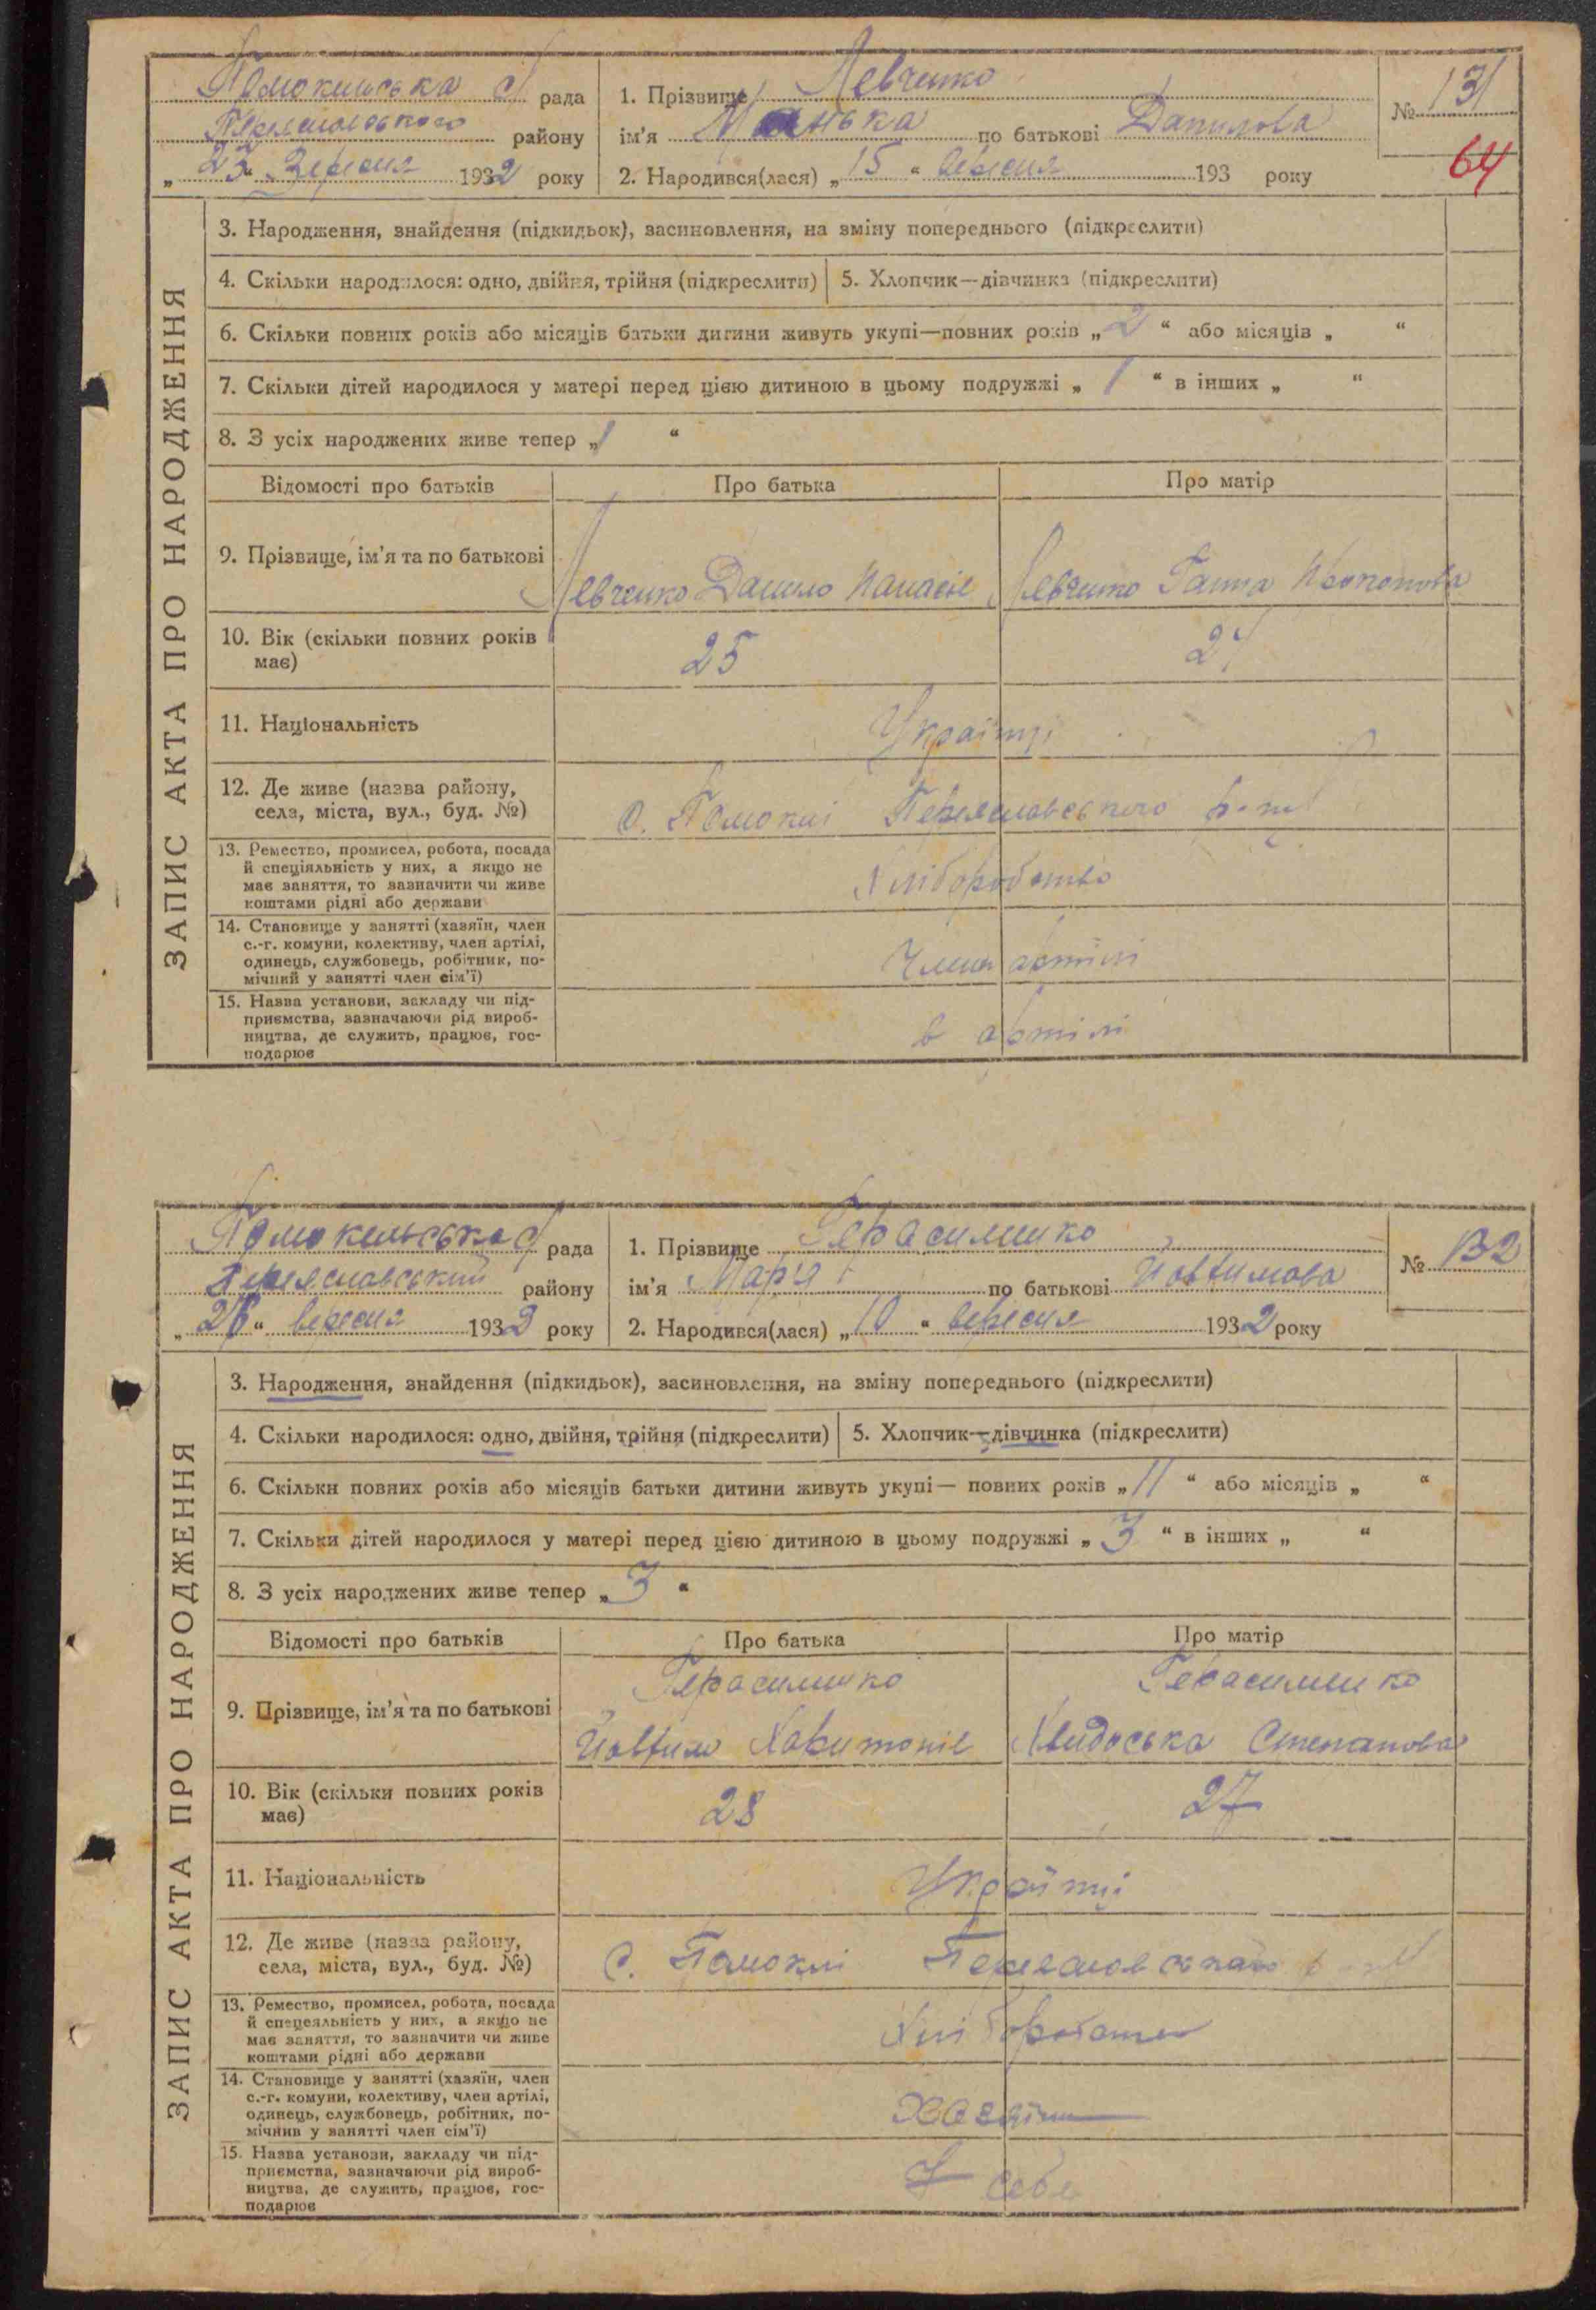 Помокильська с/рада 1. Прізвище Левченко № 131
Переяславського району ім'я Манька по батькові Данилова
„ 23 “ Вересня 1932 року 2. Народився(лася) „ 15 “ вересня 193 року 64
ЗАПИС АКТА ПРО НАРОДЖЕННЯ
3. Народження, знайдення (підкидьок), засиновлення, на зміну попереднього (підкреслити)
4. Скільки народилося: одно, двійня, трійня (підкреслити) 5. Хлопчик—дівчинка (підкреслити)
6. Скільки повних років або місяців батьки дитини живуть укупі—повних років „ 2 “ або місяців „ “
7. Скільки дітей народилося у матері перед цією дитиною в цьому подружжі „ 1 “ в інших „ “
8. З усіх народжених живе тепер „ 1 “
Відомості про батьків Про батька Про матір
9. Прізвище, ім'я та по батькові Левченко Данило Панасів Левченко Ганна Прокопова
10. Вік (скільки повних років
має) 25
11. Національність Українці
12. Де живе (назва району,
села, міста, вул., буд. №) с. Помоклі Переяславського р-ну
13. Ремество, промисел, робота, посада
й спеціяльність у них, а якщо не
має заняття, то зазначити чи живе
коштами рідні або держави Хліборобство
14. Становище у занятті (хазяїн, член
с.-г. комуни, колективу, член артілі,
одинець, службовець, робітник, по-
мічний у занятті член сім'ї) Член артілі
15. Назва установи, закладу чи під-
приємства, зазначаючи рід вироб-
ництва, де служить, працює, гос-
подарює в артілі
Помокильська с/рада 1. Прізвище Герасименко № 132
Переяславський району ім'я Мар'я по батькові Йовтимова
„ 26 “ вересня 1932 року 2. Народився(лася) „ 10 “ вересня 1932 року
ЗАПИС АКТА ПРО НАРОДЖЕННЯ
3. Народження, знайдення (підкидьок), засиновлення, на зміну попереднього (підкреслити)
4. Скільки народилося: одно, двійня, трійня (підкреслити) 5. Хлопчик—дівчинка (підкреслити)
6. Скільки повних років або місяців батьки дитини живуть укупі— повних років „ 11 “ або місяців „ “
7. Скільки дітей народилося у матері перед цією дитиною в цьому подружжі „ 3 “ в інших „ “
8. З усіх народжених живе тепер „ 3 “
Відомості про батьків Про батька Про матір
Герасименко Герасименко
9. Прізвище, ім'я та по батькові Йовтим Харитонів Хвидоська Степанова
10. Вік (скільки повних років
має) 28 27
11. Національність Українці
12. Де живе (назва району,
села, міста, вул., буд. №) с. Помоклі Переяславського р-ну
13. Ремество, промисел, робота, посада
й спецеяльність у них, а якщо не
має заняття, то зазначити чи живе
коштами рідні або держави Хлібороство
14. Становище у занятті (хазяїн, член
с.-г. комуни, колективу, член артілі,
одинець, службовець, робітник, по-
мічнив у занятті член сім'ї) Хазяїн
15. Назва установи, закладу чи під-
приємства, зазначаючи рід вироб-
ництва, де служить, працює, гос-
подарює У себе